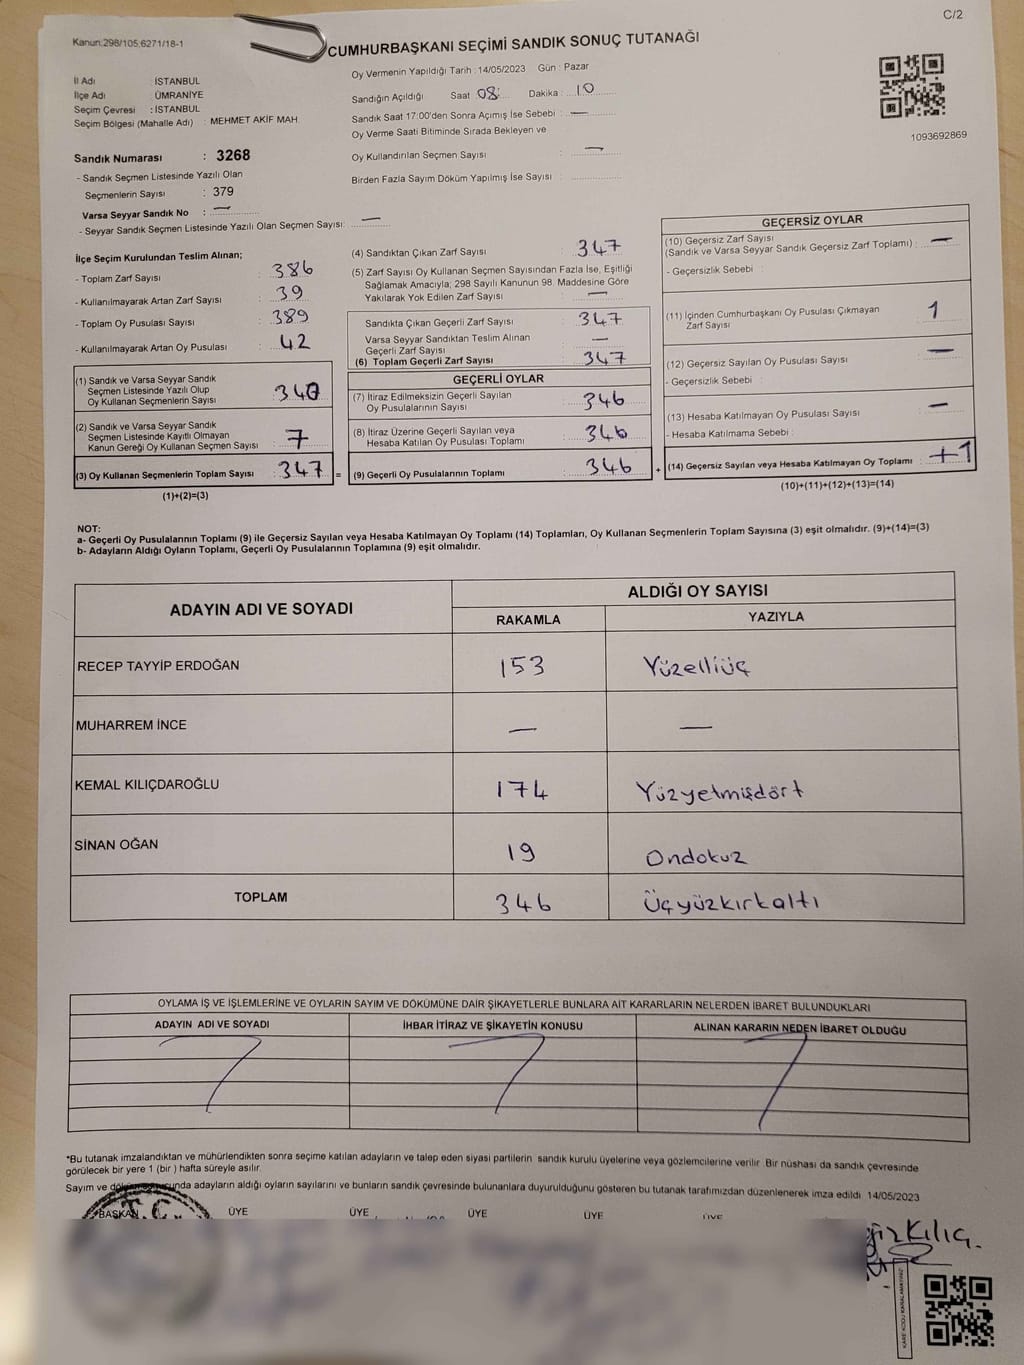 C/2
Kanun:298/105;6271/18-1
CUMHURBAŞKANI SEÇİMİ SANDIK SONUÇ TUTANAĞI
İl Adı : İSTANBUL
İlçe Adı : ÜMRANİYE
Seçim Çevresi : İSTANBUL
Seçim Bölgesi (Mahalle Adı) : MEHMET AKİF MAH.
Sandık Numarası : 3268
- Sandık Seçmen Listesinde Yazılı Olan
Seçmenlerin Sayısı : 379
Varsa Seyyar Sandık No : —
- Seyyar Sandık Seçmen Listesinde Yazılı Olan Seçmen Sayısı: —
Oy Vermenin Yapıldığı Tarih : 14/05/2023 Gün : Pazar
Sandığın Açıldığı Saat : 08 Dakika : 10
Sandık Saat 17:00'den Sonra Açımış İse Sebebi : —
Oy Verme Saati Bitiminde Sırada Bekleyen ve
Oy Kullandırılan Seçmen Sayısı : —
Birden Fazla Sayım Döküm Yapılmış İse Sayısı :
1093692869
İlçe Seçim Kurulundan Teslim Alınan;
- Toplam Zarf Sayısı : 386
- Kullanılmayarak Artan Zarf Sayısı : 39
- Toplam Oy Pusulası Sayısı : 389
- Kullanılmayarak Artan Oy Pusulası : 42
(1) Sandık ve Varsa Seyyar Sandık
Seçmen Listesinde Yazılı Olup
Oy Kullanan Seçmenlerin Sayısı : 340
(2) Sandık ve Varsa Seyyar Sandık
Seçmen Listesinde Kayıtlı Olmayan
Kanun Gereği Oy Kullanan Seçmen Sayısı : 7
(3) Oy Kullanan Seçmenlerin Toplam Sayısı : 347 =
(1)+(2)=(3)
(4) Sandıktan Çıkan Zarf Sayısı : 347
(5) Zarf Sayısı Oy Kullanan Seçmen Sayısından Fazla İse, Eşitliği
Sağlamak Amacıyla; 298 Sayılı Kanunun 98. Maddesine Göre
Yakılarak Yok Edilen Zarf Sayısı : —
Sandıkta Çıkan Geçerli Zarf Sayısı : 347
Varsa Seyyar Sandıktan Teslim Alınan
Geçerli Zarf Sayısı : —
(6) Toplam Geçerli Zarf Sayısı : 347
GEÇERLİ OYLAR
(7) İtiraz Edilmeksizin Geçerli Sayılan
Oy Pusulalarının Sayısı : 346
(8) İtiraz Üzerine Geçerli Sayılan veya
Hesaba Katılan Oy Pusulası Toplamı : 346
(9) Geçerli Oy Pusulalarının Toplamı : 346 +
GEÇERSİZ OYLAR
(10) Geçersiz Zarf Sayısı
(Sandık ve Varsa Seyyar Sandık Geçersiz Zarf Toplamı) : —
- Geçersizlik Sebebi :
(11) İçinden Cumhurbaşkanı Oy Pusulası Çıkmayan
Zarf Sayısı : 1
(12) Geçersiz Sayılan Oy Pusulası Sayısı : —
- Geçersizlik Sebebi :
(13) Hesaba Katılmayan Oy Pusulası Sayısı : —
- Hesaba Katılmama Sebebi :
(14) Geçersiz Sayılan veya Hesaba Katılmayan Oy Toplamı : +1
(10)+(11)+(12)+(13)=(14)
NOT:
a- Geçerli Oy Pusulalarının Toplamı (9) ile Geçersiz Sayılan veya Hesaba Katılmayan Oy Toplamı (14) Toplamları, Oy Kullanan Seçmenlerin Toplam Sayısına (3) eşit olmalıdır. (9)+(14)=(3)
b- Adayların Aldığı Oyların Toplamı, Geçerli Oy Pusulalarının Toplamına (9) eşit olmalıdır.
ADAYIN ADI VE SOYADI ALDIĞI OY SAYISI
RAKAMLA YAZIYLA
RECEP TAYYİP ERDOĞAN 153 Yüzelliüç
MUHARREM İNCE — —
KEMAL KILIÇDAROĞLU 174 Yüzyetmişdört
SİNAN OĞAN 19 Ondokuz
TOPLAM 346 Üçyüzkırkaltı
OYLAMA İŞ VE İŞLEMLERİNE VE OYLARIN SAYIM VE DÖKÜMÜNE DAİR ŞİKAYETLERLE BUNLARA AİT KARARLARIN NELERDEN İBARET BULUNDUKLARI
ADAYIN ADI VE SOYADI İHBAR İTİRAZ VE ŞİKAYETİN KONUSU ALINAN KARARIN NEDEN İBARET OLDUĞU
*Bu tutanak imzalandıktan ve mühürlendikten sonra seçime katılan adayların ve talep eden siyasi partilerin sandık kurulu üyelerine veya gözlemcilerine verilir. Bir nüshası da sandık çevresinde
görülecek bir yere 1 (bir ) hafta süreyle asılır.
Sayım ve adayların aldığı oyların sayılarını ve bunların sandık çevresinde bulunanlara duyurulduğunu gösteren bu tutanak tarafımızdan düzenlenerek imza edildi. 14/05/2023
BAŞKAN ÜYE ÜYE ÜYE ÜYE ÜYE
T.C.